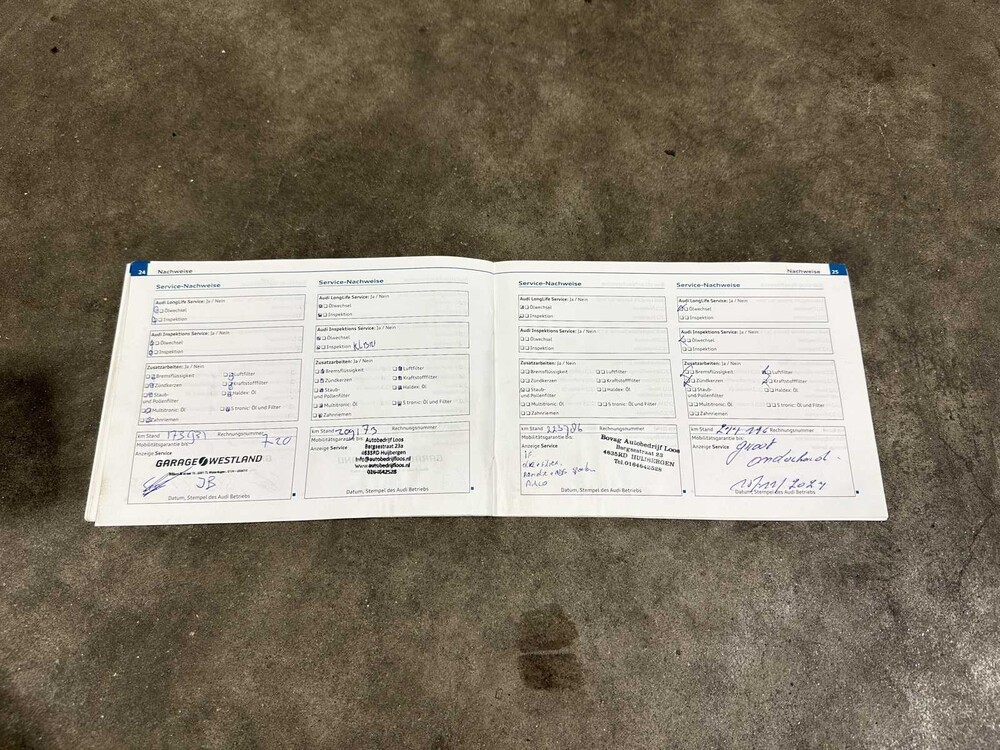 24 Nachweise
Service-Nachweise
Audi LongLife Service: Ja / Nein
Ölwechsel
Inspektion
Audi Inspektions Service: Ja / Nein
Ölwechsel
Inspektion
Zusatzarbeiten: Ja / Nein
Bremsflüssigkeit
Luftfilter
Zündkerzen
Kraftstofffilter
Staub-
und Pollenfilter
Haldex: Öl
Multitronic: Öl
S tronic: Öl und Filter
Zahnriemen
km Stand 173931 Rechnungsnummer
Mobilitätsgarantie bis: 720
Anzeige Service
GARAGE WESTLAND
JB
Datum, Stempel des Audi Betriebs
Service-Nachweise
Audi LongLife Service: Ja / Nein
Ölwechsel
Inspektion
Audi Inspektions Service: Ja / Nein
Ölwechsel
Inspektion
Zusatzarbeiten: Ja / Nein
Bremsflüssigkeit
Luftfilter
Zündkerzen
Kraftstofffilter
Staub-
und Pollenfilter
Haldex: Öl
Multitronic: Öl
S tronic: Öl und Filter
Zahnriemen
km Stand 209173 Rechnungsnummer
Mobilitätsgarantie bis:
Anzeige Service
Autobedrijf Loos
Bergsestraat 23a
4635RD Huijbergen
info@autobedrijfloos.nl
www.autobedrijfloos.nl
0164642528
Datum, Stempel des Audi Betriebs
Service-Nachweise
Audi LongLife Service: Ja / Nein
Ölwechsel
Inspektion
Audi Inspektions Service: Ja / Nein
Ölwechsel
Inspektion
Zusatzarbeiten: Ja / Nein
Bremsflüssigkeit
Luftfilter
Zündkerzen
Kraftstofffilter
Staub-
und Pollenfilter
Haldex: Öl
Multitronic: Öl
S tronic: Öl und Filter
Zahnriemen
km Stand Rechnungsnummer
Mobilitätsgarantie bis:
Anzeige Service
Bovag Autobedrijf Loos
Bergsestraat 23
4635RD HUIJBERGEN
Tel.0164642528
Datum, Stempel des Audi Betriebs
Nachweise 25
Service-Nachweise
Audi LongLife Service: Ja / Nein
Ölwechsel
Inspektion
Audi Inspektions Service: Ja / Nein
Ölwechsel
Inspektion
Zusatzarbeiten: Ja / Nein
Bremsflüssigkeit
Luftfilter
Zündkerzen
Kraftstofffilter
Staub-
und Pollenfilter
Haldex: Öl
Multitronic: Öl
S tronic: Öl und Filter
Zahnriemen
km Stand Rechnungsnummer
Mobilitätsgarantie bis:
Anzeige Service
groot
onderhoud.
Datum, Stempel des Audi Betriebs